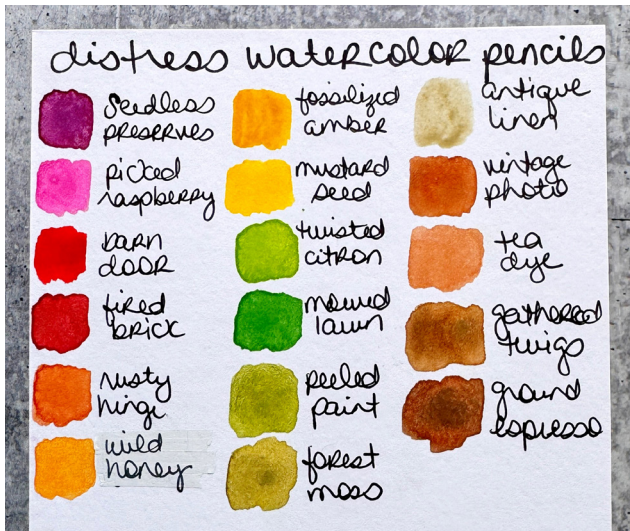 distress watercolor pencils
seedless
preserves
picked
raspberry
barn
door
fired
brick
rusty
hinge
wild
honey
fossilized
amber
mustard
seed
twisted
citron
mowed
lawn
peeled
paint
forest
moss
antique
linen
vintage
photo
tea
dye
gathered
twigs
ground
espresso